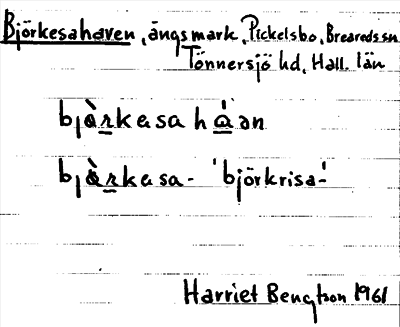 Björkesahaven, ängsmark, Pickelsbo, Breareds sn
Tönnersjö hd, Hall. län
bjàrkasa hàan
bjàrkasa- 'björkrisa-'
Harriet Bengtson 1961